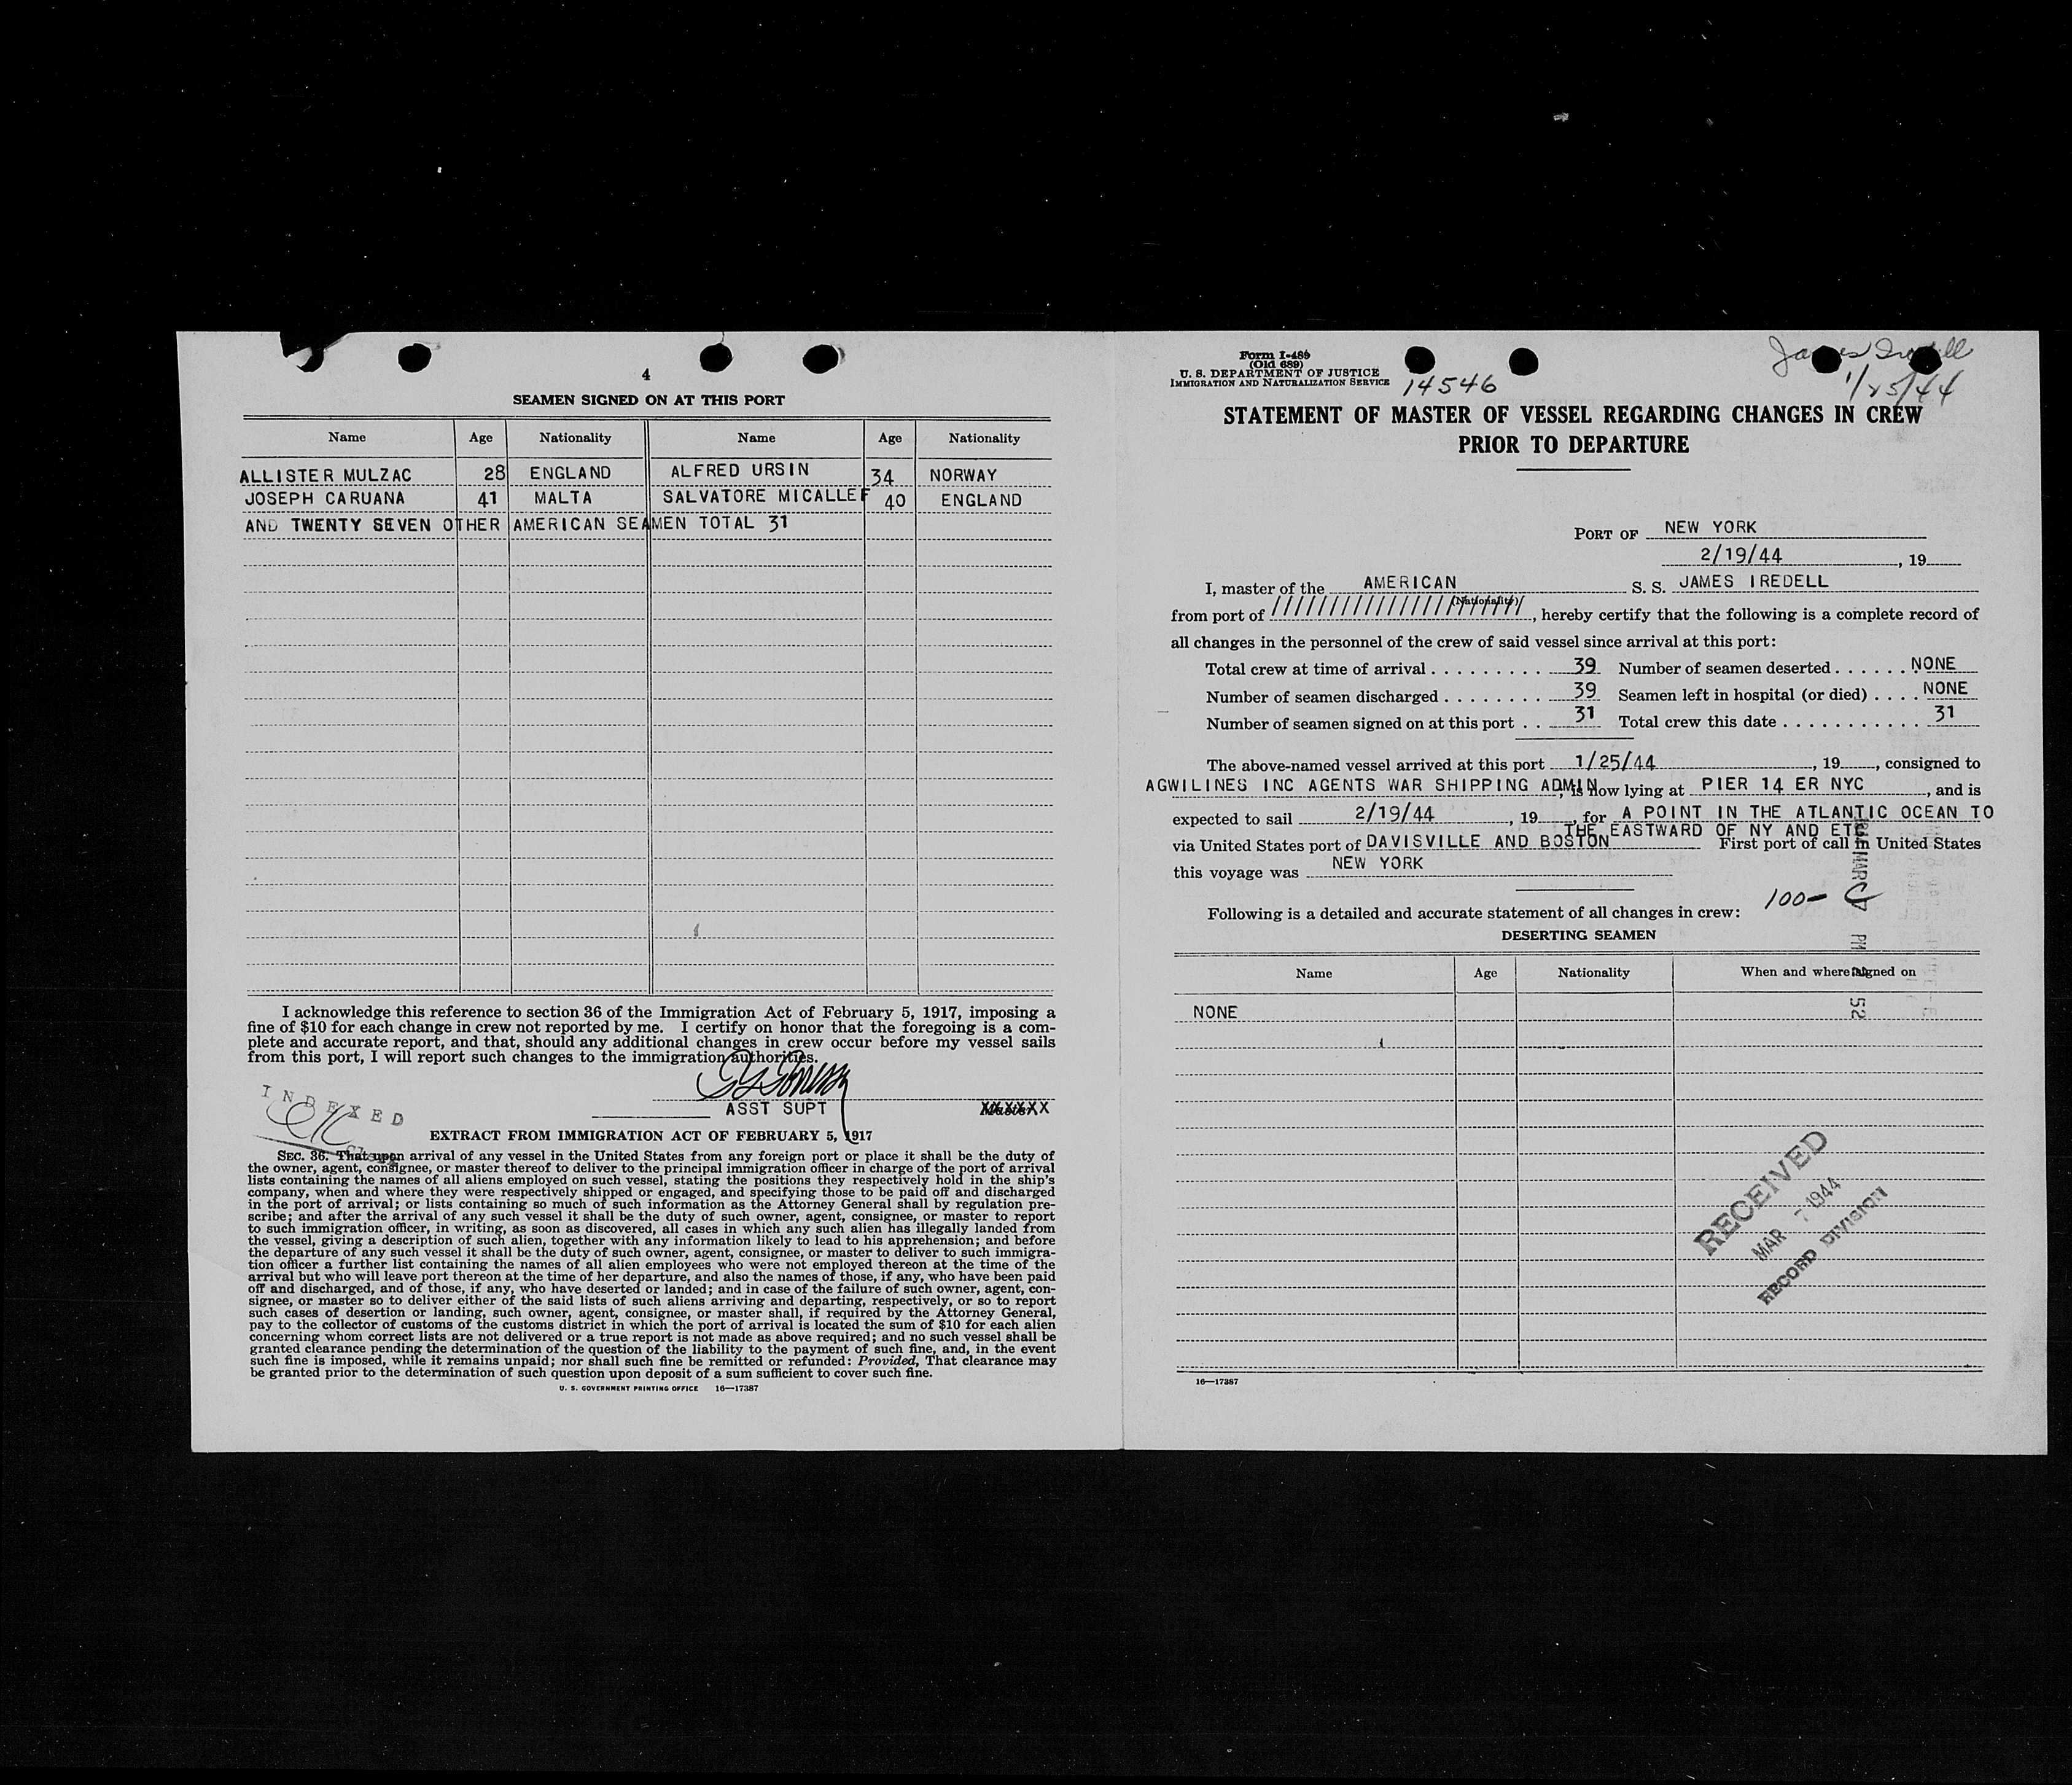 4
SEAMEN SIGNED ON AT THIS PORT
Name Age Nationality Name Age Nationality
ALLISTER MULZAC 28 ENGLAND ALFRED URSIN 34 NORWAY
JOSEPH CARUANA 41 MALTA SALVATORE MICALLEF 40 ENGLAND
AND TWENTY SEVEN OTHER AMERICAN SEAMEN TOTAL 31
I acknowledge this reference to section 36 of the Immigration Act of February 5, 1917, imposing a
fine of $10 for each change in crew not reported by me. I certify on honor that the foregoing is a com-
plete and accurate report, and that, should any additional changes in crew occur before my vessel sails
from this port, I will report such changes to the immigration authorities.
INDEXED
ASST SUPT XXXXXXX
EXTRACT FROM IMMIGRATION ACT OF FEBRUARY 5, 1917
SEC. 36. That upon arrival of any vessel in the United States from any foreign port or place it shall be the duty of
the owner, agent, consignee, or master thereof to deliver to the principal immigration officer in charge of the port of arrival
lists containing the names of all aliens employed on such vessel, stating the positions they respectively hold in the ship's
company, when and where they were respectively shipped or engaged, and specifying those to be paid off and discharged
in the port of arrival; or lists containing so much of such information as the Attorney General shall by regulation pre-
scribe; and after the arrival of any such vessel it shall be the duty of such owner, agent, consignee, or master to report
to such immigration officer, in writing, as soon as discovered, all cases in which any such alien has illegally landed from
the vessel, giving a description of such alien, together with any information likely to lead to his apprehension; and before
the departure of any such vessel it shall be the duty of such owner, agent, consignee, or master to deliver to such immigra-
tion officer a further list containing the names of all alien employees who were not employed thereon at the time of the
arrival but who will leave port thereon at the time of her departure, and also the names of those, if any, who have been paid
off and discharged, and of those, if any, who have deserted or landed; and in case of the failure of such owner, agent, con-
signee, or master so to deliver either of the said lists of such aliens arriving and departing, respectively, or so to report
such cases of desertion or landing, such owner, agent, consignee, or master shall, if required by the Attorney General,
pay to the collector of customs of the customs district in which the port of arrival is located the sum of $10 for each alien
concerning whom correct lists are not delivered or a true report is not made as above required; and no such vessel shall be
granted clearance pending the determination of the question of the liability to the payment of such fine, and, in the event
such fine is imposed, while it remains unpaid; nor shall such fine be remitted or refunded: Provided, That clearance may
be granted prior to the determination of such question upon deposit of a sum sufficient to cover such fine.
U. S. GOVERNMENT PRINTING OFFICE 16—17387
Form I-489
(Old 689)
U. S. DEPARTMENT OF JUSTICE
IMMIGRATION AND NATURALIZATION SERVICE
14546
James Iredell
1/25/44
STATEMENT OF MASTER OF VESSEL REGARDING CHANGES IN CREW
PRIOR TO DEPARTURE
PORT OF NEW YORK
2/19/44, 19
I, master of the AMERICAN S. S. JAMES IREDELL
(Nationality)
from port of ///////////////////////, hereby certify that the following is a complete record of
all changes in the personnel of the crew of said vessel since arrival at this port:
Total crew at time of arrival . . . . . . . . . . 39 Number of seamen deserted . . . . . . NONE
Number of seamen discharged . . . . . . . . 39 Seamen left in hospital (or died) . . . . NONE
Number of seamen signed on at this port . . 31 Total crew this date . . . . . . . . . . . . 31
The above-named vessel arrived at this port 1/25/44, 19, consigned to
AGWILINES INC AGENTS WAR SHIPPING ADMIN, is now lying at PIER 14 ER NYC, and is
expected to sail 2/19/44, 19, for A POINT IN THE ATLANTIC OCEAN TO
THE EASTWARD OF NY AND ETC
via United States port of DAVISVILLE AND BOSTON First port of call in United States
this voyage was NEW YORK
100-
Following is a detailed and accurate statement of all changes in crew:
DESERTING SEAMEN
Name Age Nationality When and where signed on
NONE
MAR
PM
52
RECEIVED
MAR 7 1944
RECORD DIVISION
16—17387